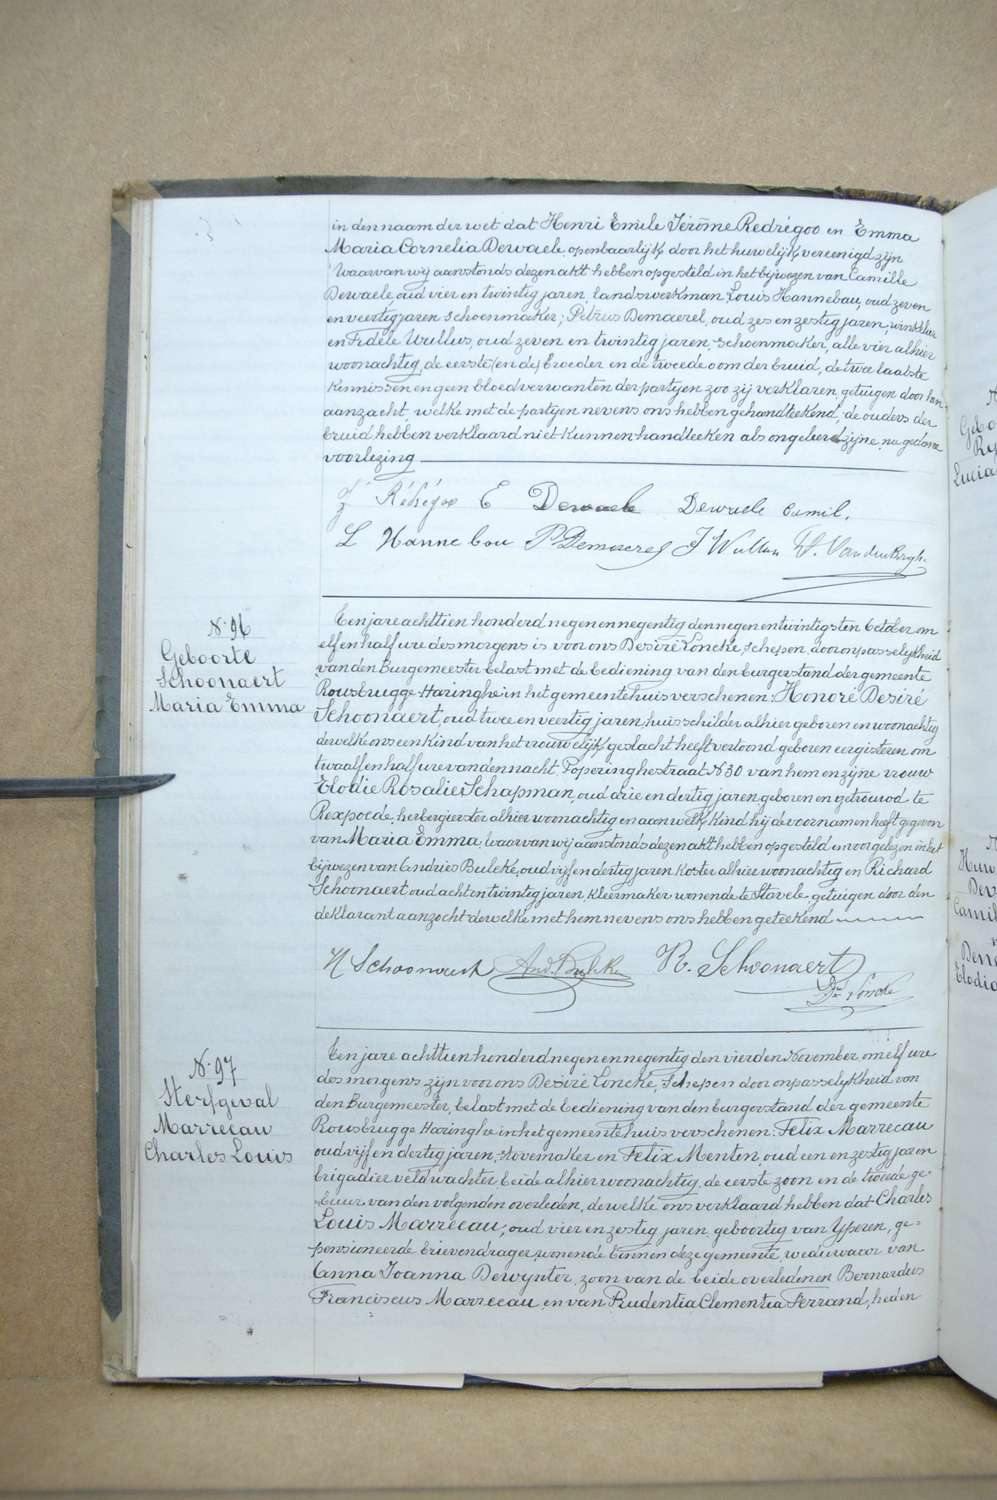 in den naam der wet dat Henri Emile Jérôme Redrégoo en Emma
Maria Cornelia Dewaele, openbaarlijk door het huwelijk vereenigd zijn
Waarvan wij aanstonds dezen akt hebben opgesteld in het bijwezen van Camille
Dewaele, oud vier en twintig jaren, landswerkman, Louis Hannebau, oud zeven
en veertig jaren schoenmaker; Petrus Demaerel, oud zes en zestig jaren, winkelier
en Fidèle Wullus, oud zeven en twintig jaren, schoenmaker, alle vier alhier
woonachtig, de eerste (en de) broeder en de tweede oom der bruid, de twee laatste
kennissen en geen bloedverwanten der partijen zoo zij verklaren, getuigen door hen
aanzacht, welke met de partijen nevens ons hebben gehandteekend, de ouders der
bruid hebben verklaard niet kunnen handteeken als ongeleerd zijne, na gedane
voorlezing
E Dewaele Dewaele Camil.
L Hannebau P Demaerel F Wullus
N. 96
Geboorte
Schoonaert
Maria Emma
Een jare achttien honderd negen en negentig den negen en twintigsten October om
elf en half ure des morgens is voor ons Desiré Loncke, schepen, door onpasselijkheid
van den Burgemeester belast met de bediening van den burgerstand der gemeente
Rousbrugge-Haringhe in het gemeentehuis verschenen: Honoré Desiré
Schoonaert, oud twee en veertig jaren, huisschilder alhier geboren en woonachtig
dewelke ons een kind van het vrouwelijk geslacht heeft vertoond geboren eergisteren om
twaalf en half ure van den nacht, Poperinghestraat N 30 van hem en zijne vrouw
Elodie Rosalie Schapman, oud drie en dertig jaren, geboren en getrouwd te
Rexpoede, herbergierster alhier woonachtig en aan welk kind hij de voornamen heeft gegeven
van Maria Emma, waarvan wij aanstonds dezen akt hebben opgesteld en voorgelezen in het
bijwezen van Andries Bulcke, oud vijf en dertig jaren koster alhier woonachtig en Richard
Schoonaert oud acht en twintig jaren, kleermaker wonende te Stavele getuigen door den
deklarant aanzocht dewelke met hem nevens ons hebben geteekend
H Schoonaert And. Bulcke R. Schoonaert
Dré Loncke
N. 97
Sterfgeval
Marrecau
Charles Louis
Een jare achttien honderd negen en negentig den vierden November, om elf ure
des morgens zijn voor ons Desiré Loncke, Schepen door onpasselijkheid van
den Burgemeester, belast met de bediening van den burgerstand der gemeente
Rousbrugge Haringhe in het gemeentehuis verschenen: Felix Marrecau
oud vijf en dertig jaren, stovemaker en Felix Menten, oud een en zestig jaren
brigadier veldwachter beide alhier woonachtig, de eerste zoon en de tweede ge-
buur van den volgenden overleden, dewelke ons verklaard hebben dat Charles
Louis Marrecau, oud vier en zestig jaren, geboortig van Yperen, ge-
pensioneerde brievendrager, wonende binnen deze gemeente, weduwaar van
Anna Joanna Dewynter, zoon van de beide overledenen Bernardus
Franciscus Marrecau en van Prudentia Clementia Ferrand, heden